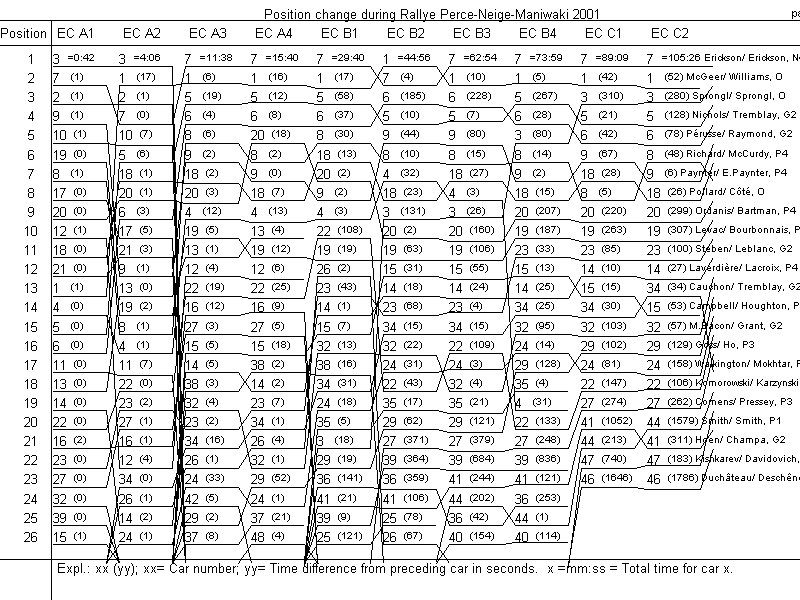 Position change during Rallye Perce-Neige-Maniwaki 2001
Position EC A1 EC A2 EC A3 EC A4 EC B1 EC B2 EC B3 EC B4 EC C1 EC C2
1 3 =0:42 3 =4:06 7 =11:38 7 =15:40 7 =29:40 1 =44:56 7 =62:54 7 =73:59 7 =89:09 7 =105:26 Erickson/ Erickson, N
2 7 (1) 1 (17) 1 (6) 1 (16) 1 (17) 7 (4) 1 (10) 1 (5) 1 (42) 1 (52) McGeer/ Williams, O
3 2 (1) 2 (1) 5 (19) 5 (12) 5 (58) 6 (185) 6 (228) 5 (267) 3 (310) 3 (280) Sprongl/ Sprongl, O
4 9 (1) 7 (0) 6 (4) 6 (8) 6 (37) 5 (10) 5 (7) 6 (28) 5 (21) 5 (128) Nichols/ Tremblay, G2
5 10 (1) 10 (7) 8 (6) 20 (18) 8 (30) 9 (44) 9 (80) 3 (80) 6 (42) 6 (78) Pérusse/ Raymond, G2
6 19 (0) 5 (6) 9 (2) 8 (2) 18 (13) 8 (10) 8 (15) 8 (14) 9 (67) 8 (48) Richard/ McCurdy, P4
7 8 (1) 18 (1) 18 (2) 9 (0) 20 (2) 4 (32) 18 (27) 9 (2) 18 (28) 9 (6) Paynter/ E.Paynter, P4
8 17 (0) 20 (1) 20 (3) 18 (7) 9 (2) 18 (23) 4 (3) 18 (15) 8 (5) 18 (26) Pollard/ Côté, O
9 20 (0) 6 (3) 4 (12) 4 (13) 4 (3) 3 (131) 3 (26) 20 (207) 20 (220) 20 (299) Ordanis/ Bartman, P4
10 12 (1) 17 (5) 19 (5) 13 (4) 22 (108) 20 (2) 20 (160) 19 (187) 19 (263) 19 (307) Levac/ Bourbonnais, P
11 18 (0) 21 (3) 13 (1) 19 (12) 19 (19) 19 (63) 19 (106) 23 (33) 23 (85) 23 (100) Steben/ Leblanc, G2
12 21 (0) 9 (1) 12 (4) 12 (6) 26 (2) 15 (31) 15 (55) 15 (13) 14 (10) 14 (27) Laverdière/ Lacroix, P4
13 1 (1) 13 (0) 22 (19) 22 (25) 23 (43) 14 (18) 14 (24) 14 (25) 15 (15) 34 (34) Cauchon/ Tremblay, G2
14 4 (0) 19 (2) 16 (12) 16 (9) 14 (1) 23 (68) 23 (4) 34 (25) 34 (30) 15 (53) Campbell/ Houghton, P
15 5 (0) 8 (1) 27 (3) 27 (5) 15 (7) 34 (15) 34 (15) 32 (95) 32 (103) 32 (57) M.Bacon/ Grant, G2
16 6 (0) 4 (1) 15 (5) 15 (18) 32 (13) 32 (22) 22 (109) 24 (14) 29 (102) 29 (129) Goss/ Ho, P3
17 11 (0) 11 (7) 14 (5) 38 (2) 38 (16) 24 (31) 24 (3) 29 (128) 24 (81) 24 (158) Walkington/ Mokhtar, P
18 13 (0) 22 (0) 38 (3) 14 (2) 34 (31) 22 (43) 32 (4) 35 (4) 22 (147) 22 (106) Komorowski/ Karzynski
19 14 (0) 23 (2) 32 (4) 23 (7) 24 (18) 35 (17) 35 (21) 4 (31) 27 (274) 27 (262) Comens/ Pressey, P3
20 22 (0) 27 (1) 23 (2) 34 (1) 35 (5) 29 (62) 29 (121) 22 (133) 41 (1052) 44 (1579) Smith/ Smith, P1
21 16 (2) 16 (1) 34 (16) 26 (4) 3 (18) 27 (371) 27 (379) 27 (248) 44 (213) 41 (311) Hoen/ Champa, G2
22 23 (0) 12 (4) 26 (1) 32 (1) 29 (19) 39 (364) 39 (684) 39 (836) 47 (740) 47 (183) Kishkarev/ Davidovich,
23 27 (0) 34 (0) 24 (33) 29 (52) 36 (141) 36 (359) 41 (244) 41 (121) 46 (1646) 46 (1786) Duchâteau/ Deschên
24 32 (0) 26 (1) 42 (5) 24 (1) 41 (21) 41 (106) 44 (202) 36 (253)
25 39 (0) 14 (2) 29 (2) 37 (21) 39 (9) 25 (78) 36 (42) 44 (1)
26 15 (1) 24 (1) 37 (8) 48 (4) 25 (121) 26 (67) 40 (154) 40 (114)
Expl.: xx (yy); xx= Car number; yy= Time difference from preceding car in seconds. x =mm:ss = Total time for car x.